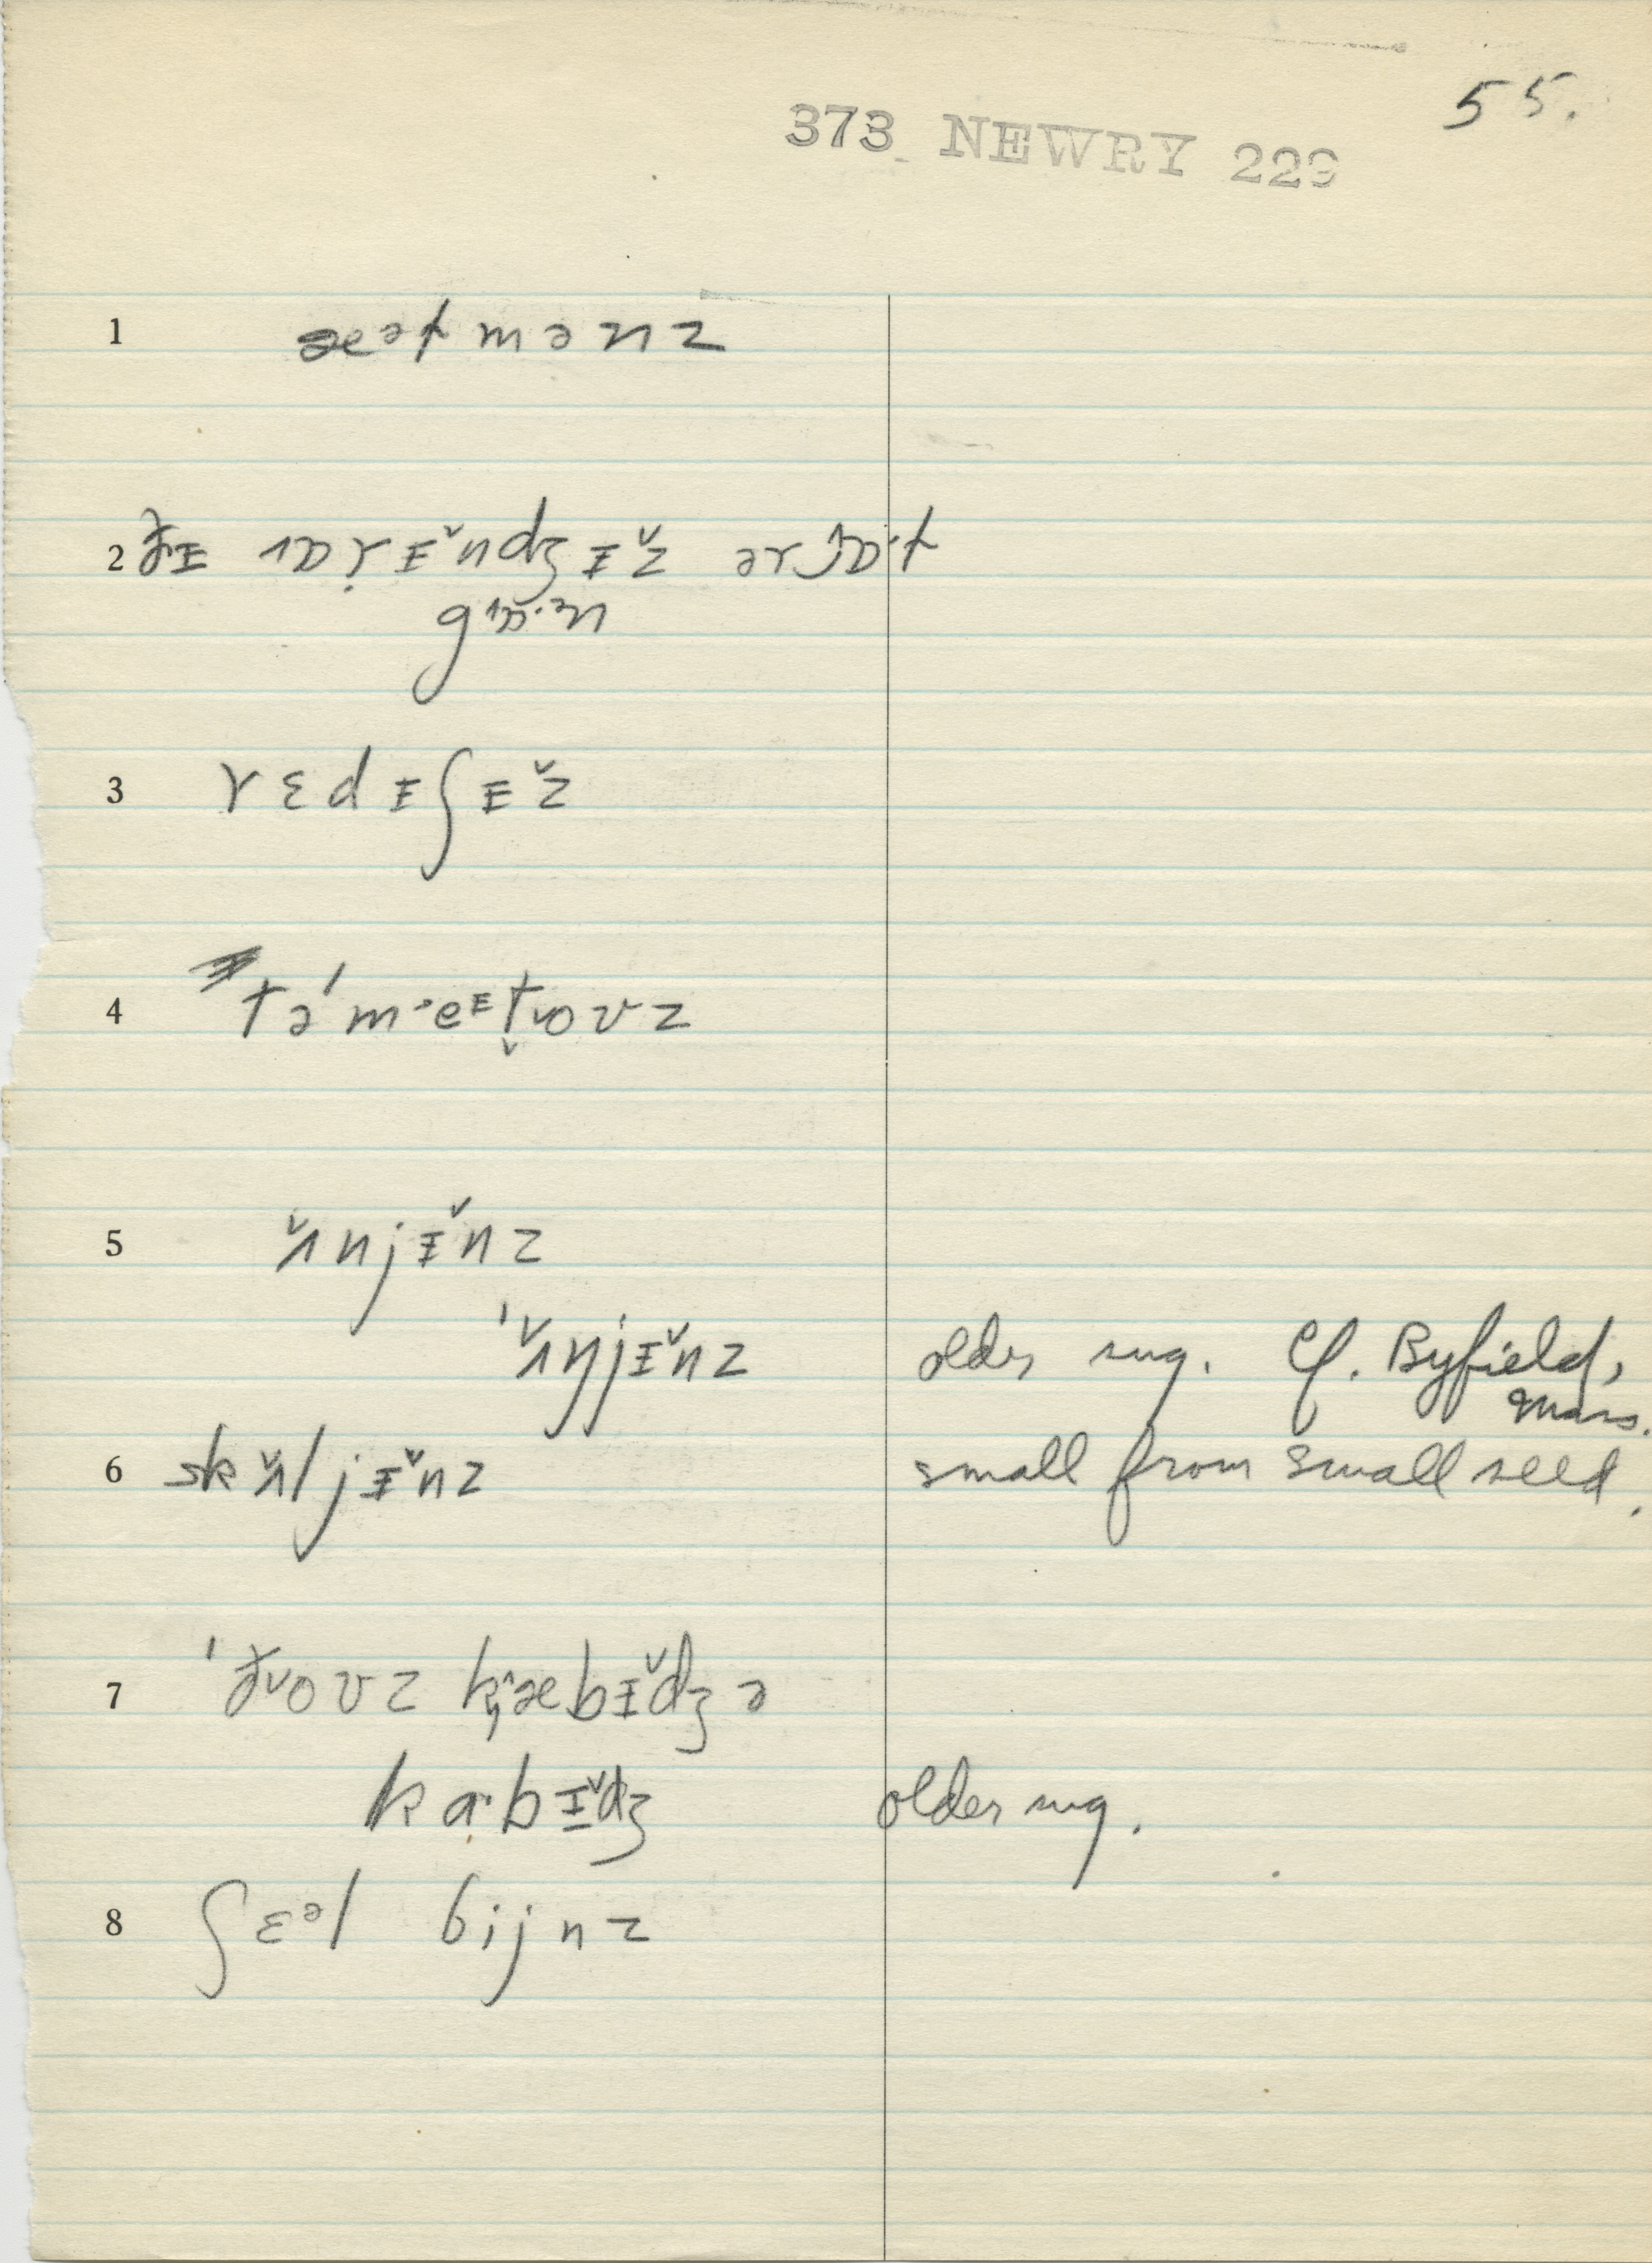 55.
373 NEWRY 229
1 æətmənz
2 ðɪ ɒrɪ̌ndʒɪž ər ɒ·t
gɒ·ən
3 rɛdɪʃɪž
4 təˊm·eɪt̬ovz
5 ʌ̌njɪ̌nz
ˈʌ̌ŋjɪ̌nz older sug. Cf. Byfield,
Mass.
6 skʌ̌ljɪ̌nz small from small seed.
7 ˈðovz kæbɪ̌dʒə
ka·bɪ̌dʒ older sug.
8 ʃɛəl bijnz